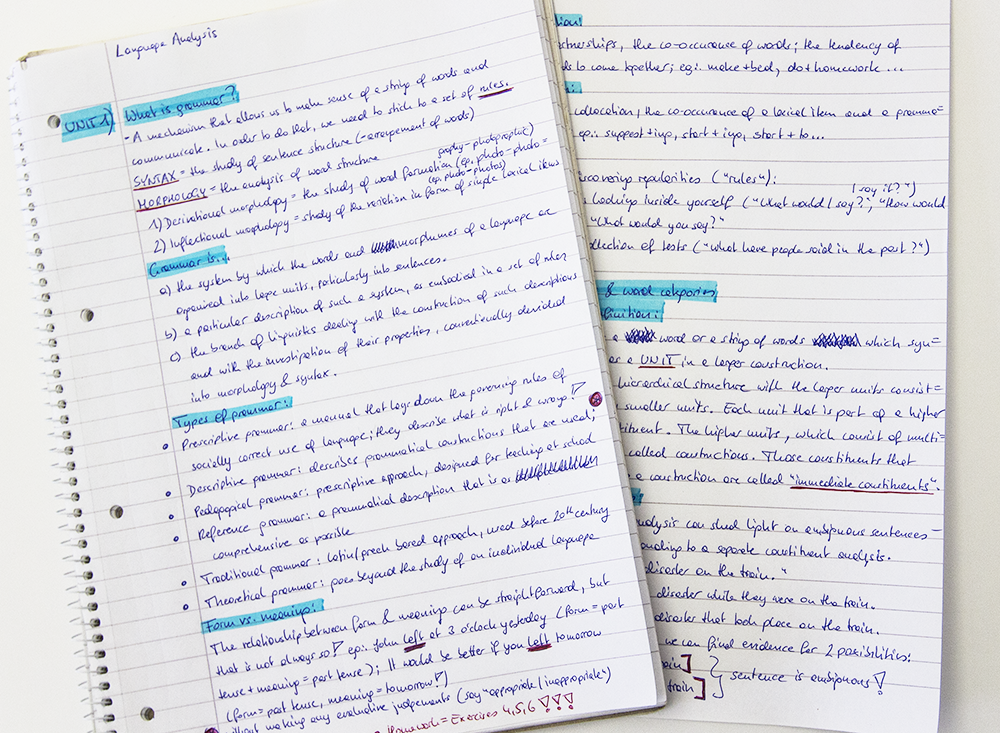 Language Analysis
UNIT 1) What is grammar?
- A mechanism that allows us to make sense of a string of words and
communicate. In order to do that, we need to stick to a set of rules.
SYNTAX = the study of sentence structure (- arrangement of words)
MORPHOLOGY = the analysis of word structure
graphy - photographic)
1) Derivational morphology = the study of word formation (eg. photo - photo =
(eg. photo - photos)
2) Inflectional morphology = study of the variation in form of single lexical items
Grammar is...
a) the system by which the words and morphemes of a language are
organized into large units, particularly into sentences.
b) a particular description of such a system, as embodied in a set of rules
c) the branch of linguistics dealing with the construction of such descriptions
and with the investigation of their properties, conventionally divided
into morphology & syntax.
Types of grammar:
Prescriptive grammar: a manual that lays down the governing rules of
socially correct use of language; they describe what is right & wrong!
Descriptive grammar: describes grammatical constructions that are used;
Pedagogical grammar: prescriptive approach, designed for teaching at school
Reference grammar: a grammatical description that is as
comprehensive as possible
Traditional grammar: latin/greek based approach, used before 20th century
Theoretical grammar: goes beyond the study of an individual language
Form vs. meaning:
The relationship between form & meaning can be straightforward, but
that is not always so! eg: John left at 3 o'clock yesterday (form = past
tense + meaning = past tense); It would be better if you left tomorrow
(form = past tense, meaning = tomorrow!)
without making any evaluative judgements (say "appropriate / inappropriate")
Homework = Exercises 4, 5, 6 !!!
tion:
tnerships, the co-occurence of words; the tendency of
ds to come together; eg: make + bed, do + homework ...
collocation, the co-occurence of a lexical item and a gramma=
eg: suggest + ing, start + ing, start + to...
scovering regularities ("rules"):
I say it?")
Looking inside yourself ("What would I say?", "How would
"What would you say?"
ollection of texts ("what have people said in the past?")
& word categories
finition:
a word or a string of words which syn=
as a UNIT in a larger construction.
hierarchical structure with the larger units consist=
smaller units. Each unit that is part of a higher
stituent. The higher units, which consist of multi=
called constructions. Those constituents that
a construction are called "immediate constituents".
nalysis can shed light on ambiguous sentences -
onding to a separate constituent analysis.
disaster on the train."
disaster while they were on the train.
disaster that took place on the train.
we can find evidence for 2 possibilities:
rain]
train] } sentence is ambiguous!